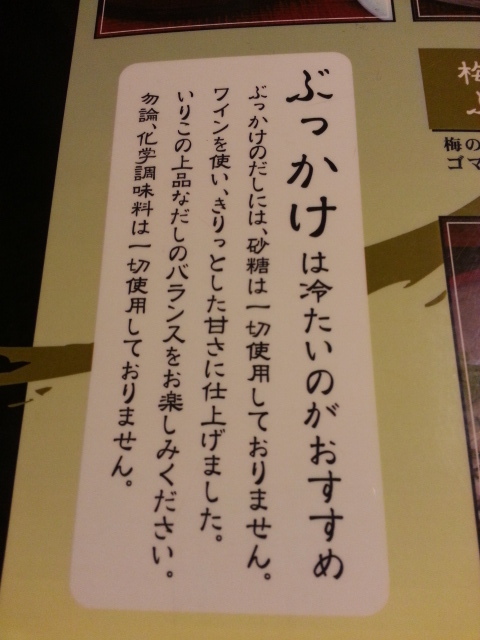 ぶっかけは冷たいのがおすすめ
ぶっかけのだしには、砂糖は一切使用しておりません。
ワインを使い、きりっとした甘さに仕上げました。
いりこの上品なだしのバランスをお楽しみください。
勿論、化学調味料は一切使用しておりません。
梅
ぶ
梅の
ゴマ